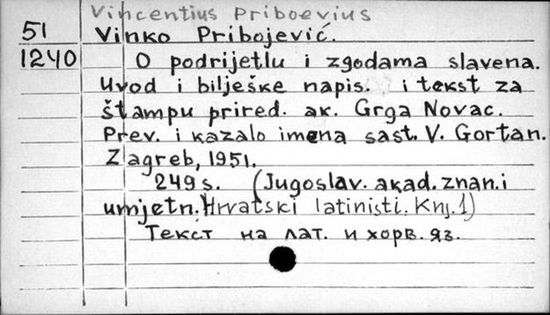 Vincentius Priboevius
51 Vinko Pribojević.
1240 O podrijetlu i zgodama slavena.
Uvod i bilješke napis. i tekst za
štampu prired. ak. Grga Novac.
Prev. i kazalo imena sast. V. Gortan.
Zagreb, 1951.
249 s. (Jugoslav. akad. znan. i
umjetn. Hrvatski latinisti. Knj. 1)
Текст на лат. и хорв. яз.